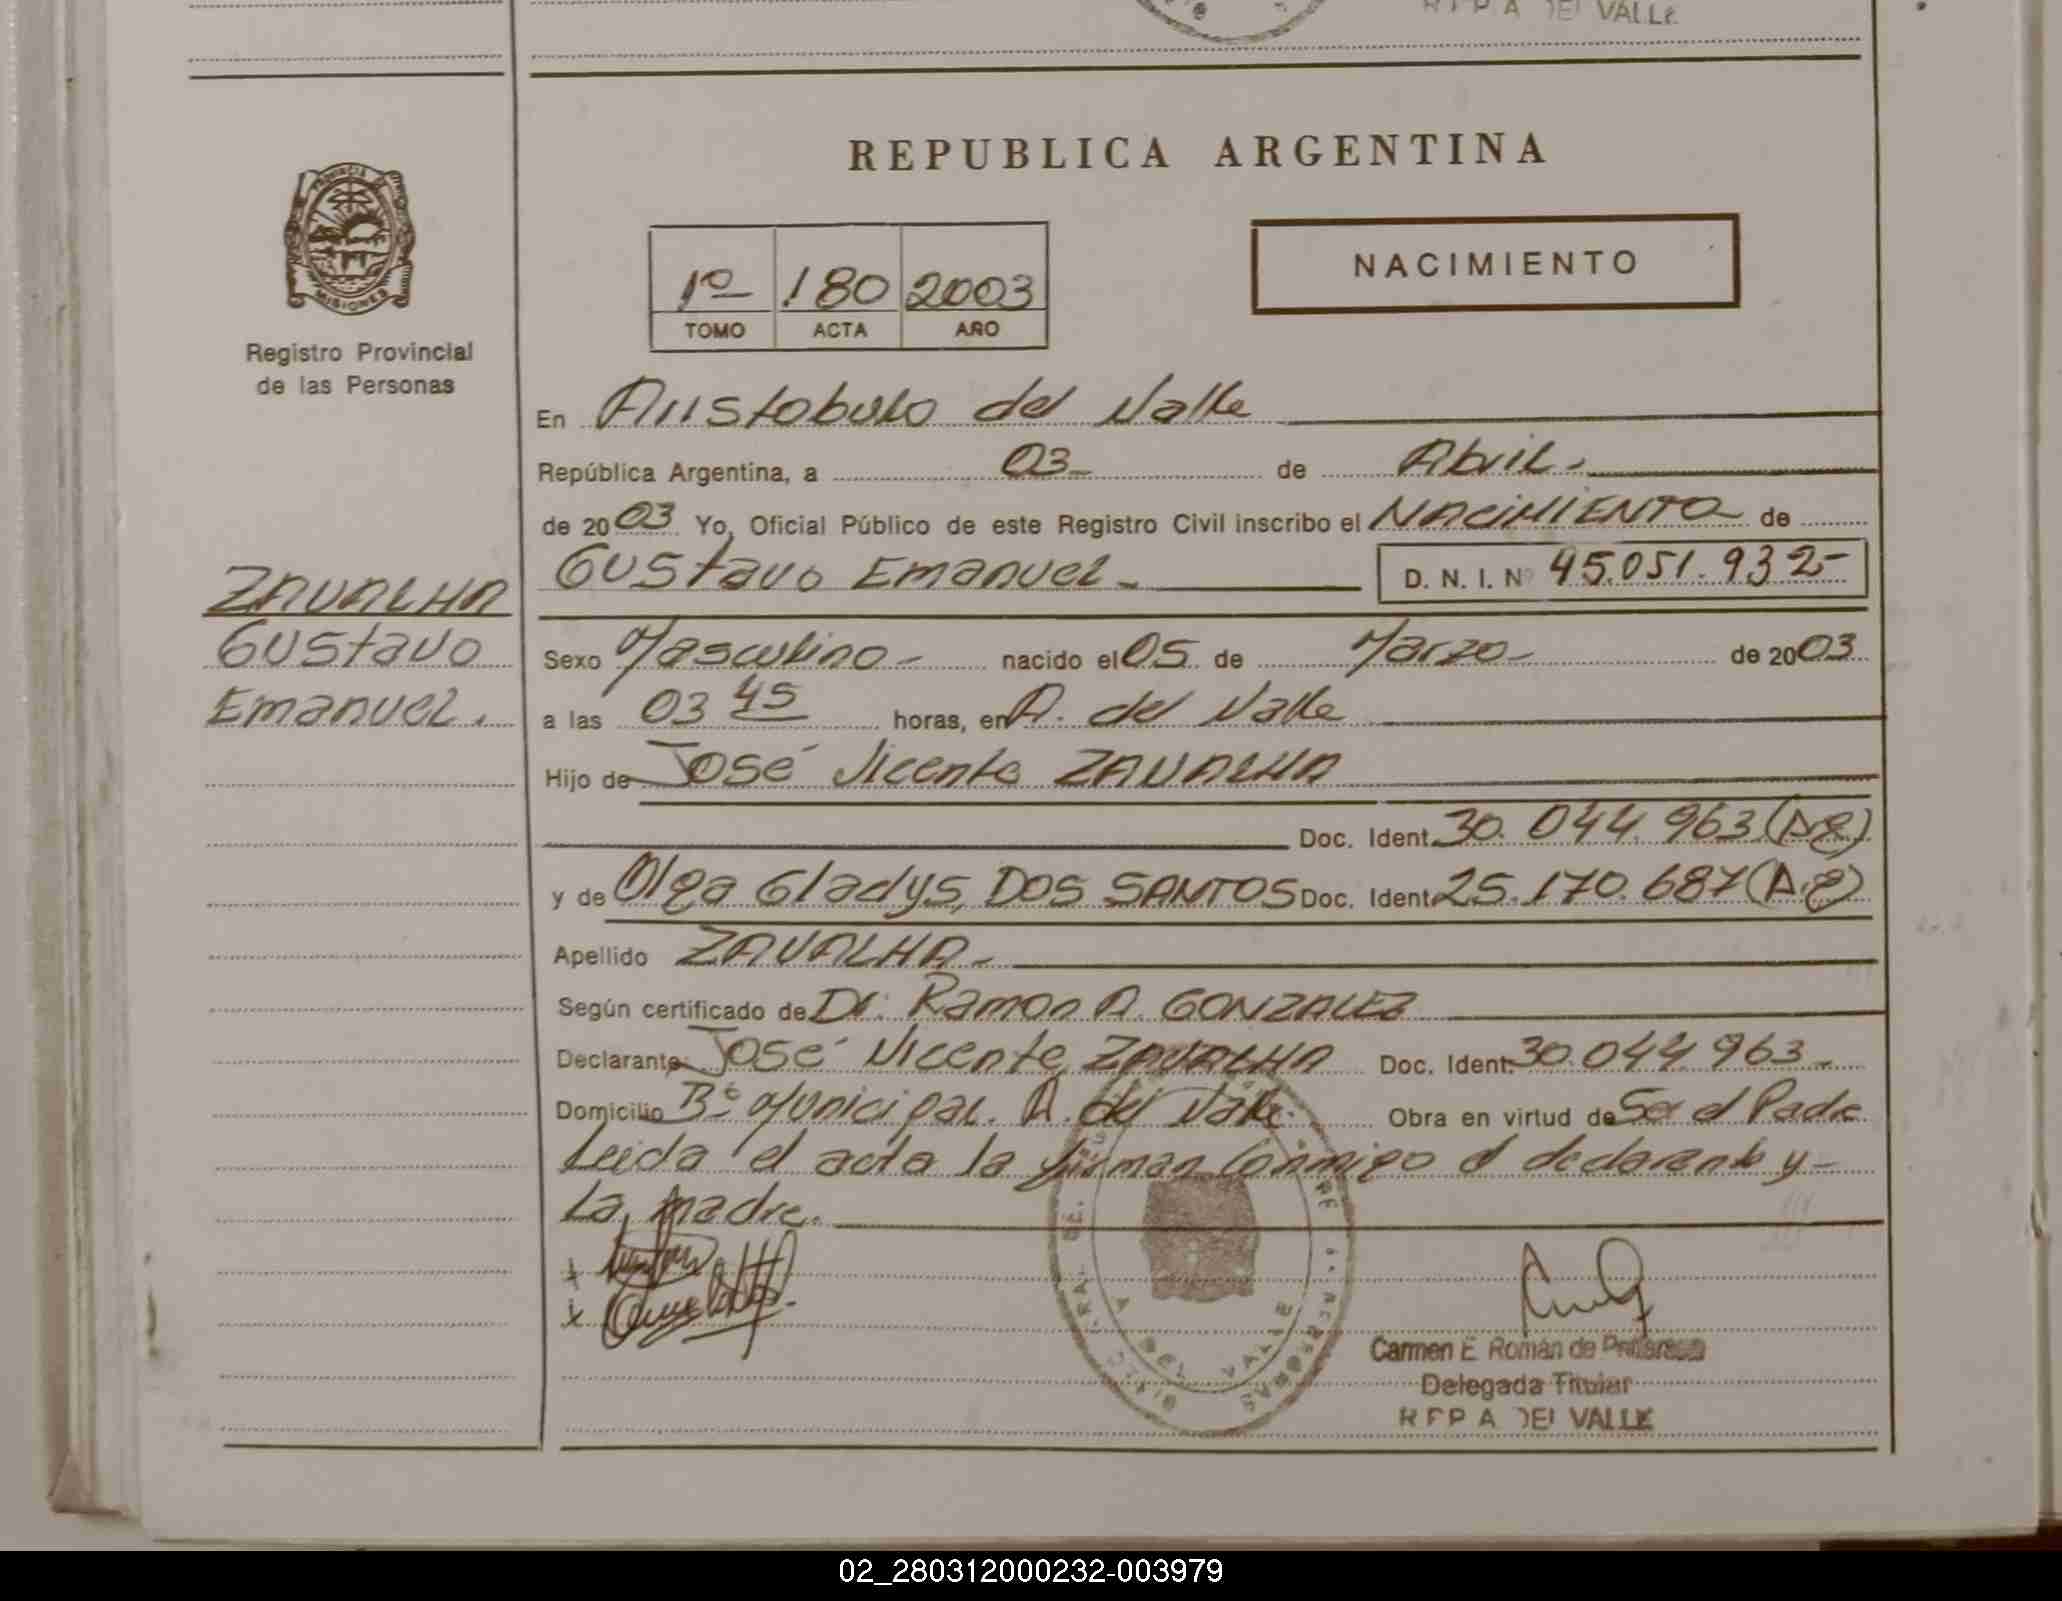 R.E.P. A. DEL VALLE
REPUBLICA ARGENTINA
PROVINCIA DE
MISIONES
Registro Provincial
de las Personas
1º 180 2003
TOMO ACTA AÑO
NACIMIENTO
En Aristobulo del Valle
República Argentina, a 03 de Abril.
de 2003 Yo, Oficial Público de este Registro Civil inscribo el NACIMIENTO de
Gustavo Emanuel D. N. I. Nº 45.051.932
ZAVALHA
Gustavo
Emanuel.
Sexo Masculino nacido el 05 de Marzo de 2003
a las 03 45 horas, en A. del Valle
Hijo de José Vicente ZAVALHA
Doc. Ident. 30.044.963 (Ag)
y de Olga Gladys, DOS SANTOS Doc. Ident. 25.170.687 (A.g)
Apellido ZAVALHA
Según certificado de Dr. Ramon A. GONZALEZ
Declarante José Vicente ZAVALHA Doc. Ident. 30.044.963
Domicilio Bº Municipal. A. del Valle. Obra en virtud de Ser el Padre
Leida el acta la firman conmigo el declarante y
La madre.
A DEL VALLE
Carmen E. Román de
Delegada Titular
R.E.P. A. DEL VALLE
02_280312000232-003979